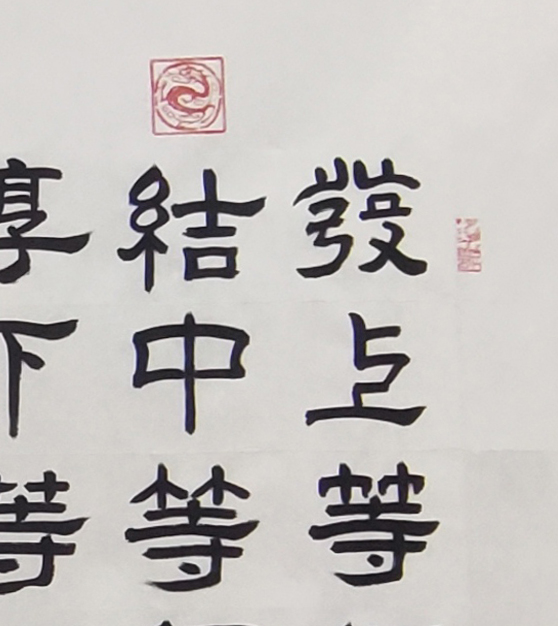 發上等
結中等
享下等